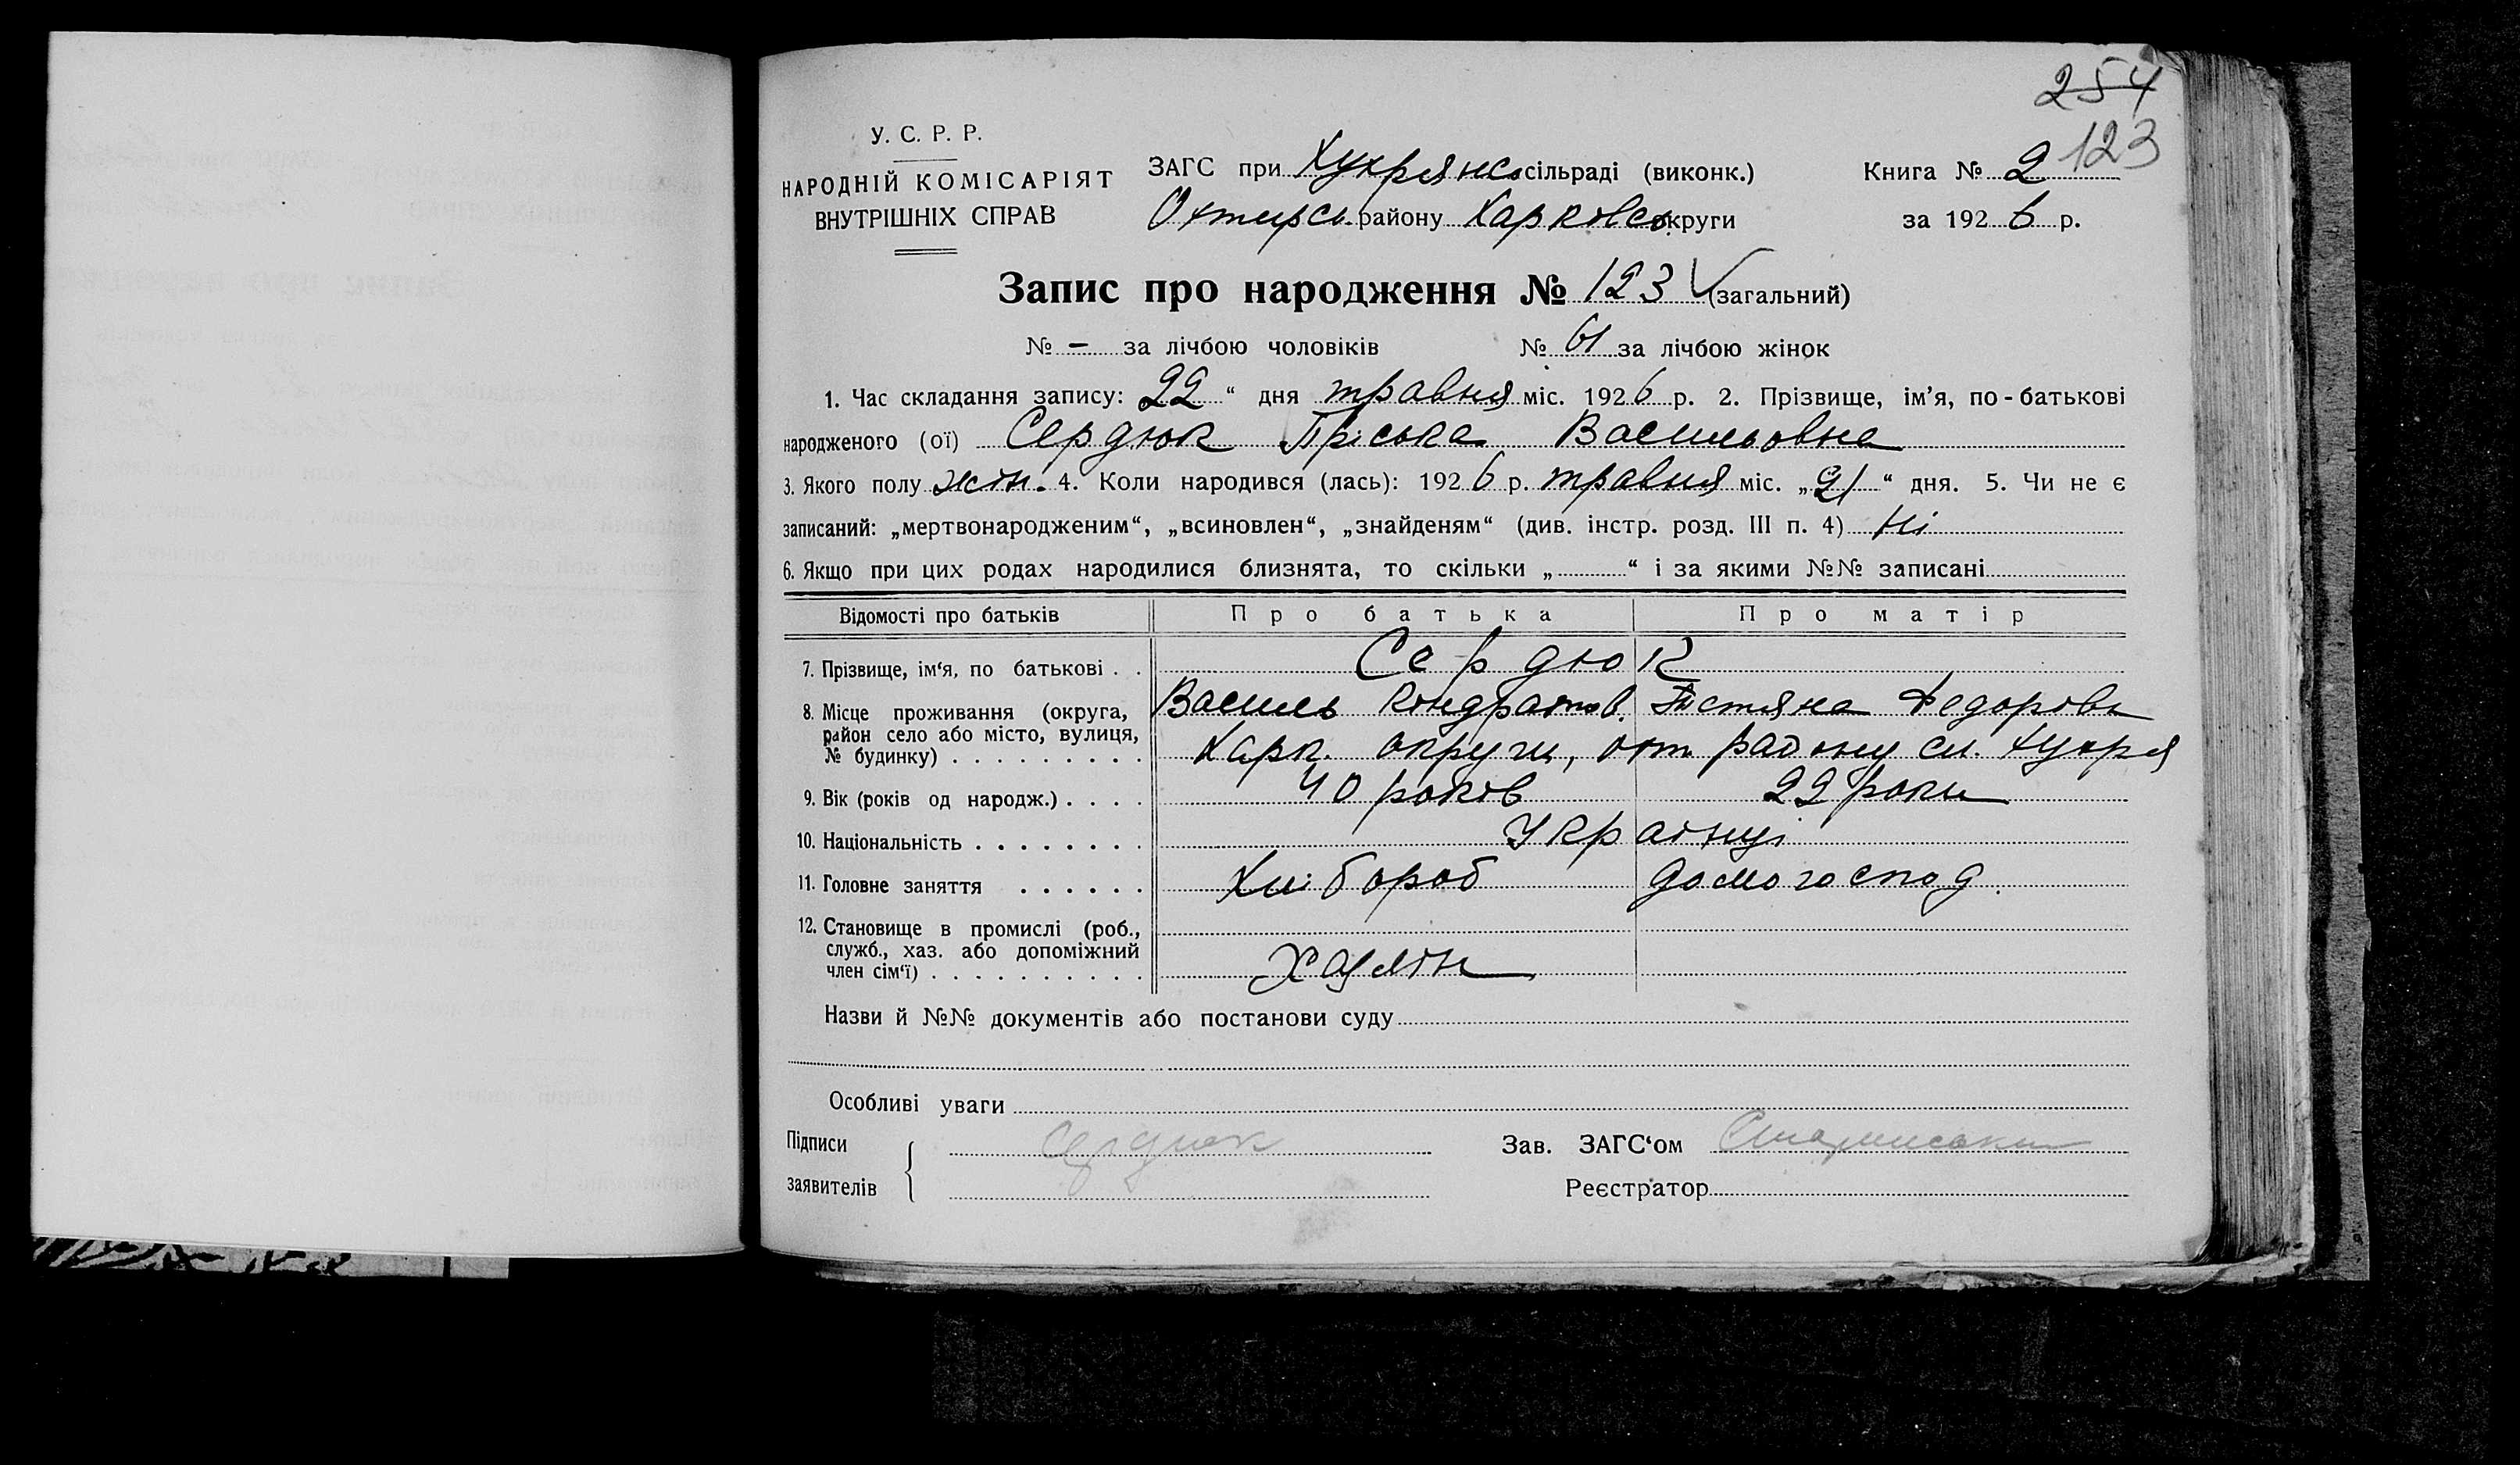 254
123
У. С. Р. Р.
НАРОДНІЙ КОМІСАРІЯТ
ВНУТРІШНІХ СПРАВ
ЗАГС при Хухрянс. сільраді (виконк.) Книга № 2
Охтирсь. району Харковсь. округи за 192 6 р.
Запис про народження № 123 (загальний)
№ – за лічбою чоловіків № 61 за лічбою жінок
1. Час складання запису: 22 “ дня травня міс. 192 6 р. 2. Прізвище, ім’я, по-батькові
народженого (ої) Сердюк Пріська Васильовна
3. Якого полу жін. 4. Коли народився (лась): 192 6 р. травня міс. „ 21 “ дня. 5. Чи не є
записаний: „мертвонародженим“, „всиновлен“, „знайденям“ (див. інстр. розд. III п. 4) Ні
6. Якщо при цих родах народилися близнята, то скільки „ “ і за якими №№ записані
Відомості про батьків Про батька Про матір
7. Прізвище, ім‘я, по батькові . . Сердюк
8. Місце проживання (округа, Василь Кондратов. Тетяна Федоровн
район село або місто, вулиця,
№ будинку) . . . . . . . . . Харк. округи, охт. району сл. Хухря
9. Вік (років од народж.) . . . . 40 років 22 роки
10. Національність . . . . . . . . Українці
11. Головне заняття . . . . . . Хлібороб домогоспод.
12. Становище в промислі (роб.,
служб., хаз. або допоміжний
член сім‘ї) . . . . . . . . . .
Назви й №№ документів або постанови суду
Особливі уваги
Підписи Сердюк Зав. ЗАГС‘ом
заявителів Реєстратор